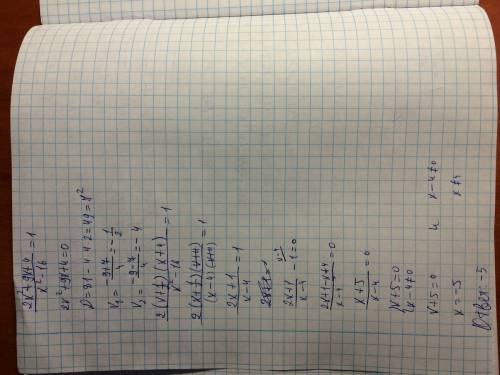 (2x²+9x+4)/(x²-16) = 1
2x²+9x+4=0
D=81-4·4·2=49=7²
x₁ = (-9+7)/4 = -1/2
x₂ = (-9-7)/4 = -4
2(x+1/2)(x+4)/(x²-16) = 1
2(x+1/2)(x+4)/((x-4)(x+4)) = 1
(2x+1)/(x-4) = 1
(2x+1)/(x-4) - 1 = 0
(2x+1-x+4)/(x-4) = 0
(x+5)/(x-4) = 0
{x+5=0
{x-4≠0
x+5=0 и x-4≠0
x=-5 x≠4
Ответ: -5